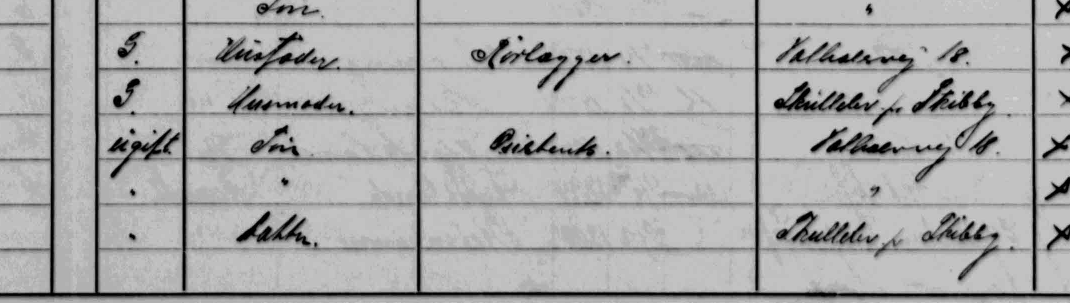 Søn. "
G. Husfader. Rørlægger. Valhøsvej 18.
G. Husmoder. Skuldelev pr Skibby.
ugift. Søn. 18.
" " "
" Datter. Skuldelev pr Skibby.